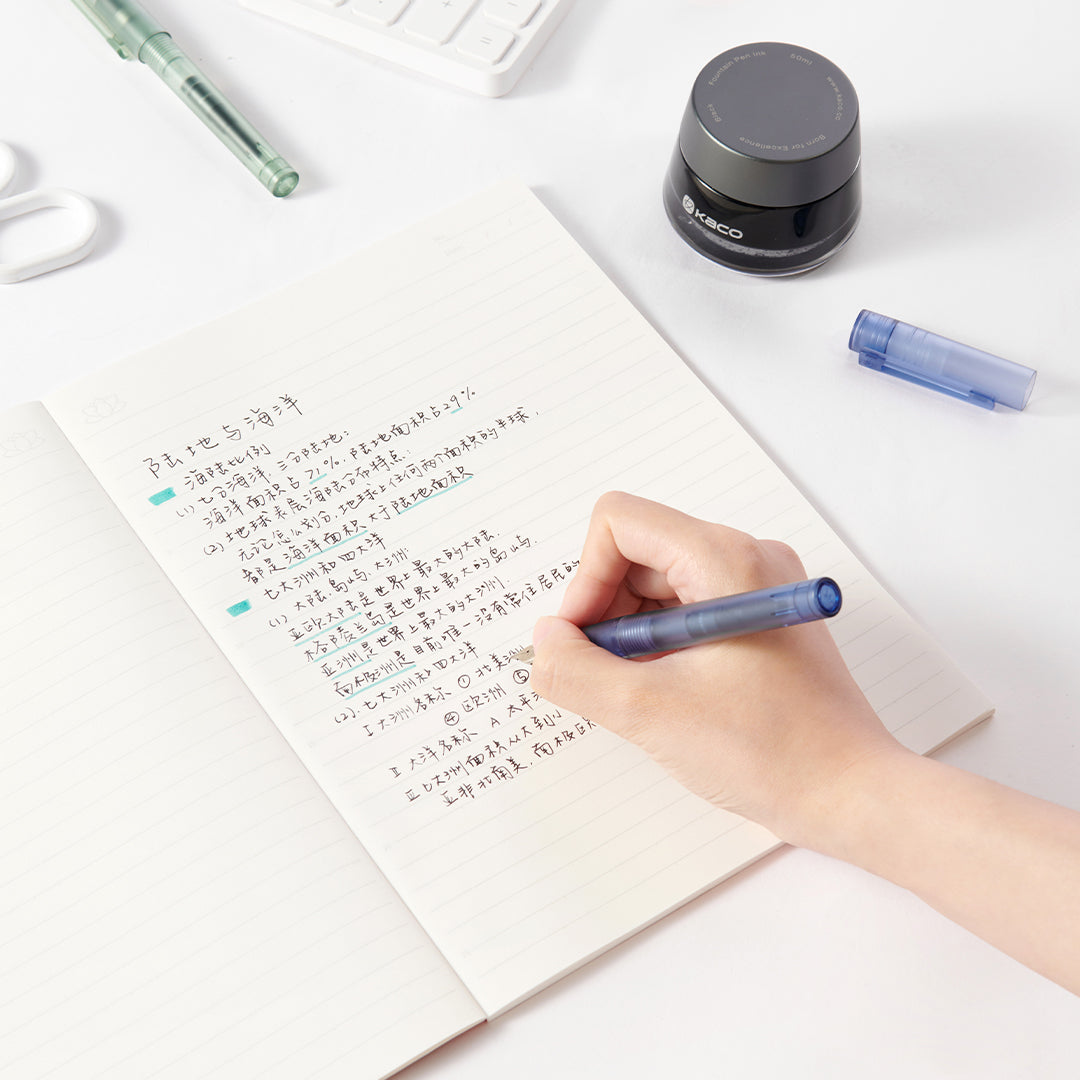 Fountain Pen Ink
60ml
www.kaco.cc
Born for Excellence
Black
KACO
陆地与海洋
海陆比例
(1) 七分海洋,三分陆地:
海洋面积占71%,陆地面积占29%
(2) 地球表层海陆分布特点:
无论怎么划分,地球上任何两个面积的半球,
都是海洋面积大于陆地面积
七大洲和四大洋
(1) 大陆、岛屿、大洲:
亚欧大陆是世界上最大的大陆.
格陵兰岛是世界上最大的岛屿.
亚洲是世界上最大的大洲.
南极洲是目前唯一没有常住居民的
(2). 七大洲和四大洋
I 大洲名称 ① 北美洲
④ 欧洲 ⑤
II 大洋名称 A 太平
III 七大洲面积从大到小
亚非北南美,南极欧